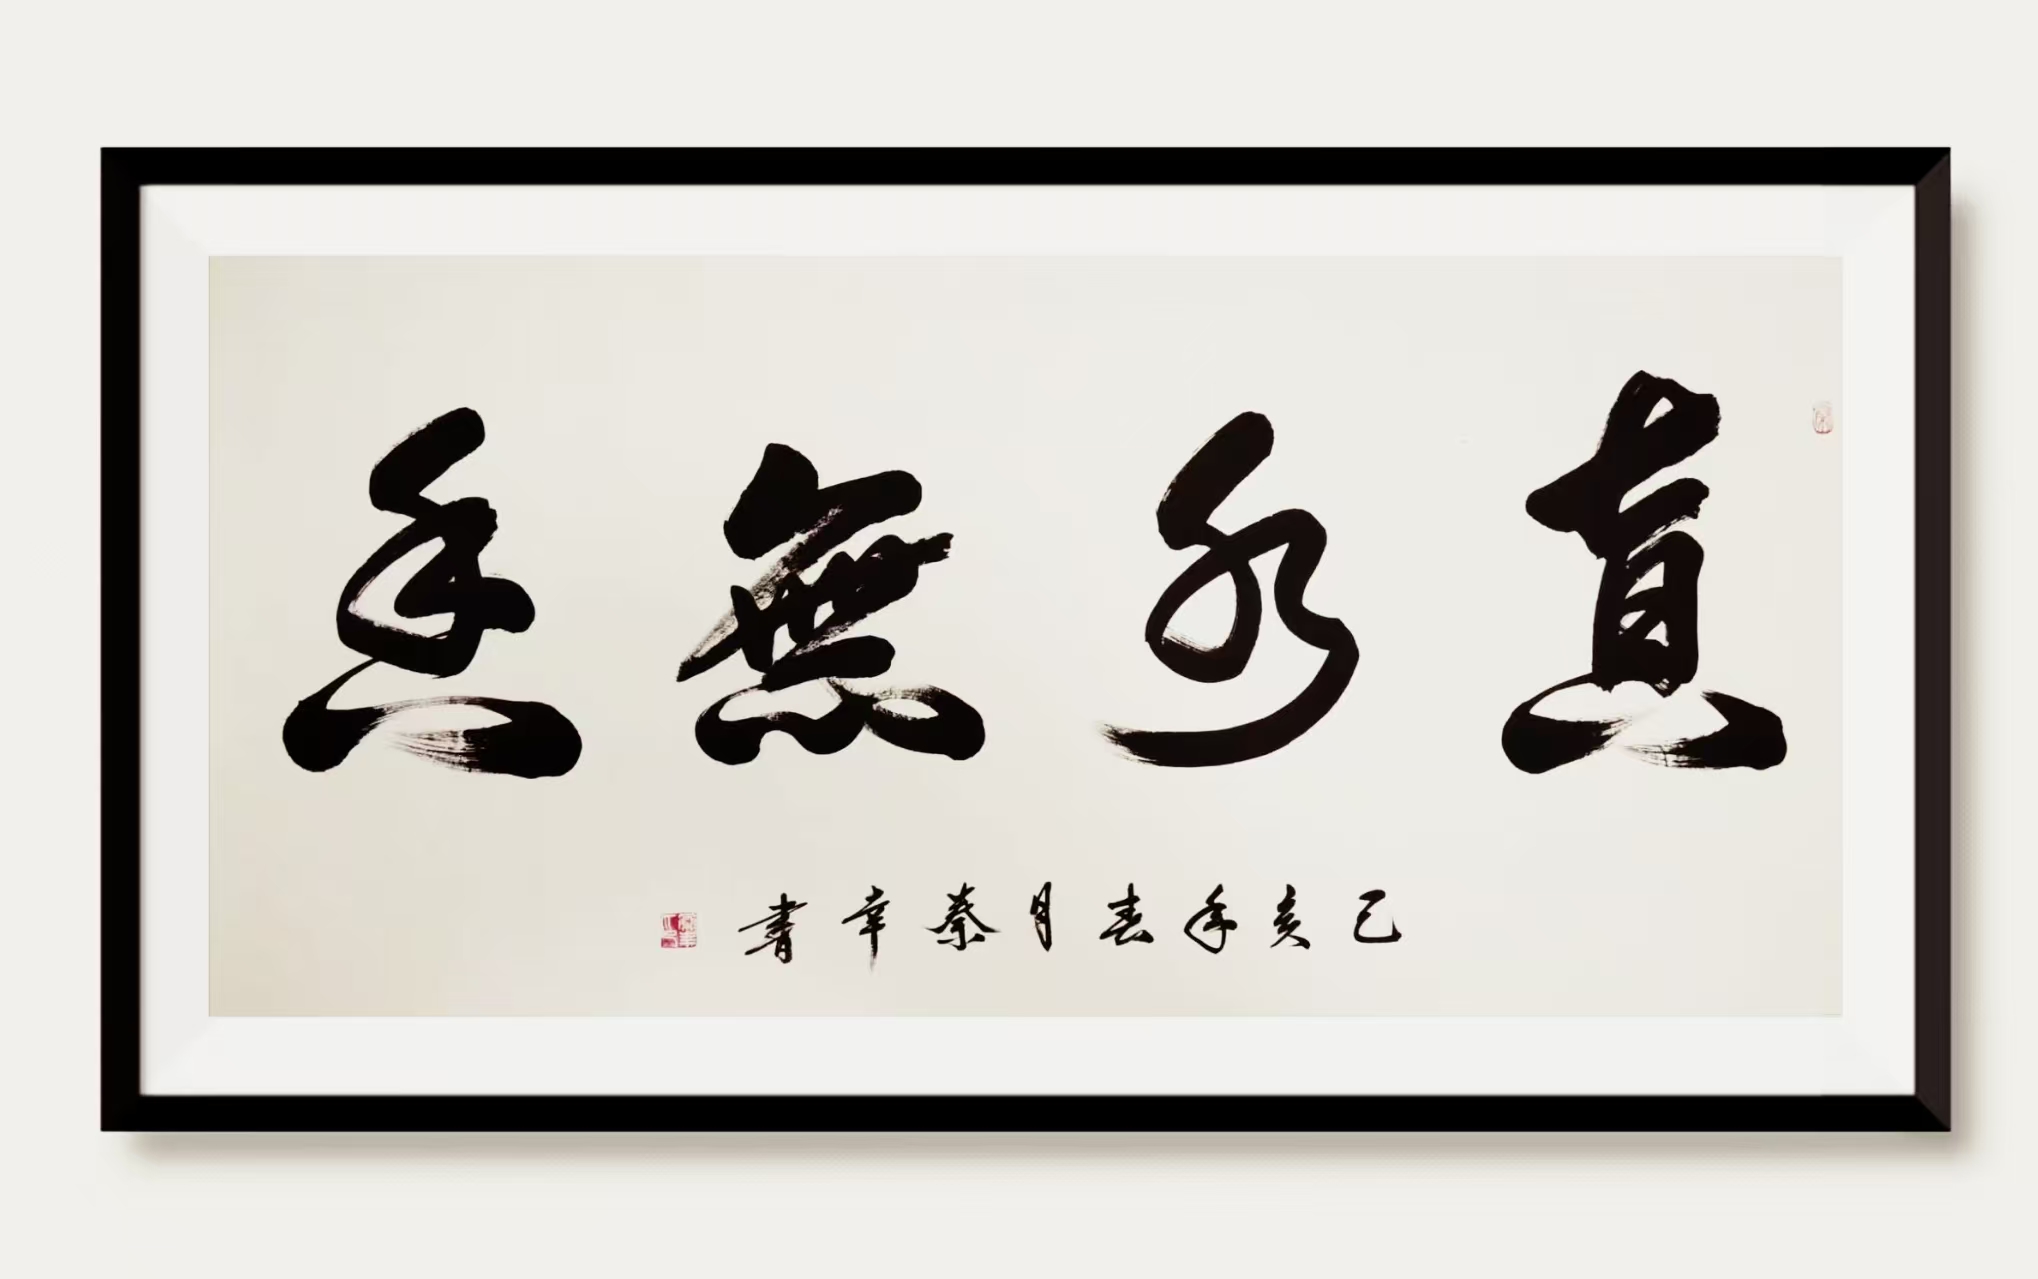 真水無香
己亥年春月秦幸書